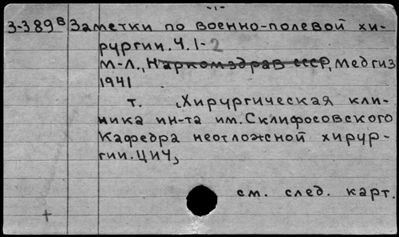 -1-
3-389в Заметки по военно-полевой хи-
рургии. Ч.1-2
М-Л., Наркомздрав СССР, Медгиз
1941
т. (Хирургическая кли-
ника ин-та им. Склифосовского
Кафедра неотложной хирур-
гии. ЦИУ)
см. след. карт.
+